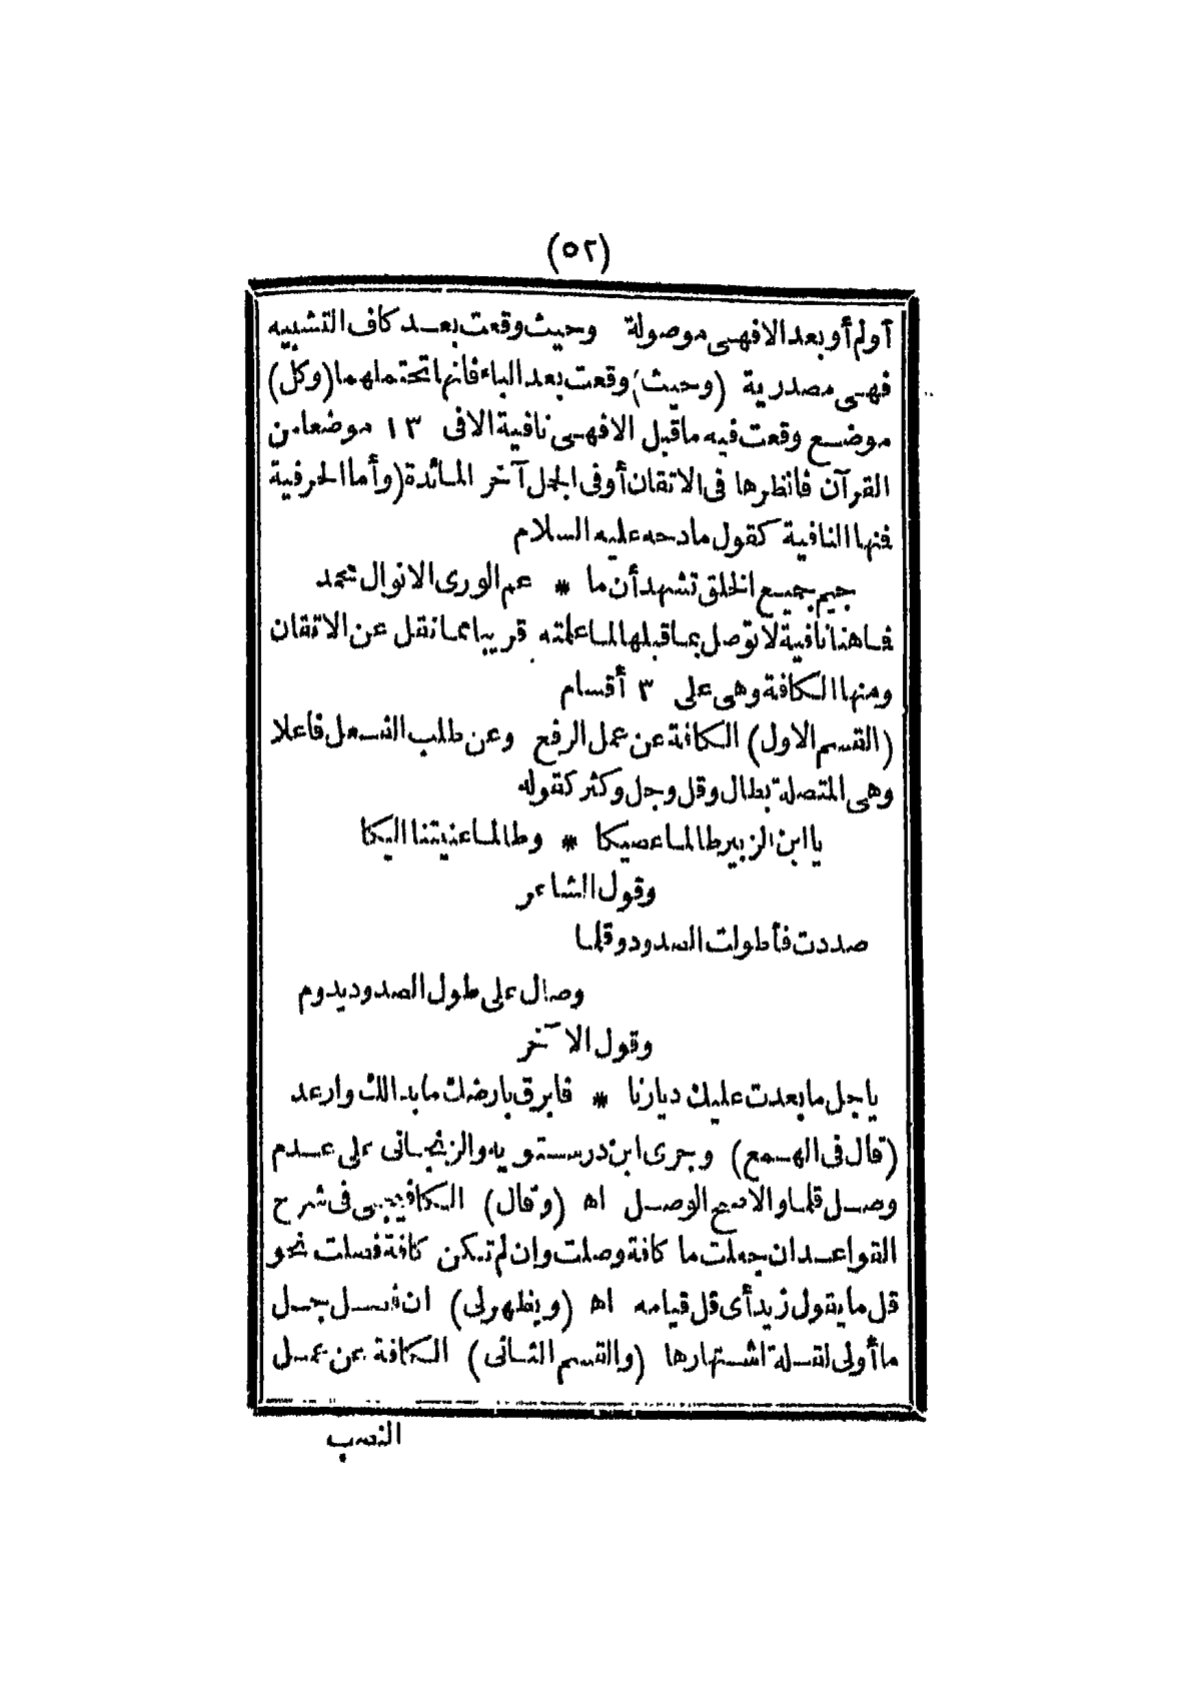 (٥٢)
أولم أو بعد الا فهى موصولة وحيث وقعت بعد كاف التشبيه
فهى مصدرية (وحيث) وقعت بعد الباء فانها تحتملهما (وكل)
موضع وقعت فيه ما قبل الا فهى نافية الا فى ١٣ موضعا من
القرآن فانظرها فى الاتقان أو فى الجمل آخر المائدة (وأما الحرفية
فنها النافية كقول مادحه عليه السلام
جيم جميع الخلق تشهد أن ما * عم الورى الا نوال محمد
فما هنا نافية لا توصل بما قبلها لما علمته قريبا مما نقل عن الاتقان
ومنها الكافة وهى على ٣ أقسام
(القسم الاول) الكافة عن عمل الرفع وعن طلب الفعل فاعلا
وهى المتصلة بطال وقل وجل وكثر كقوله
يا ابن الزبير طالما عصيكا * وطالما عنيتنا اليكا
وقول الشاعر
صددت فأطولت الصدود وقلما
وصال على طول الصدود يدوم
وقول الآخر
يا جل ما بعدت عليك ديارنا * فابرق بارضك ما بدالك وارعد
(قال فى الهمع) وجرى ابن درستويه والزنجانى على عدم
وصل قلما والاصح الوصل اه (وقال) الكافيجى فى شرح
القواعد ان جعلت ما كافة وصلت وإن لم تكن كافة فصلت نحو
قل ما يقول زيد أى قل قيامه اه (ويظهر لى) ان فصل جل
ما أولى لقلة اشتهارها (والقسم الثانى) الكافة عن عمل
النصب